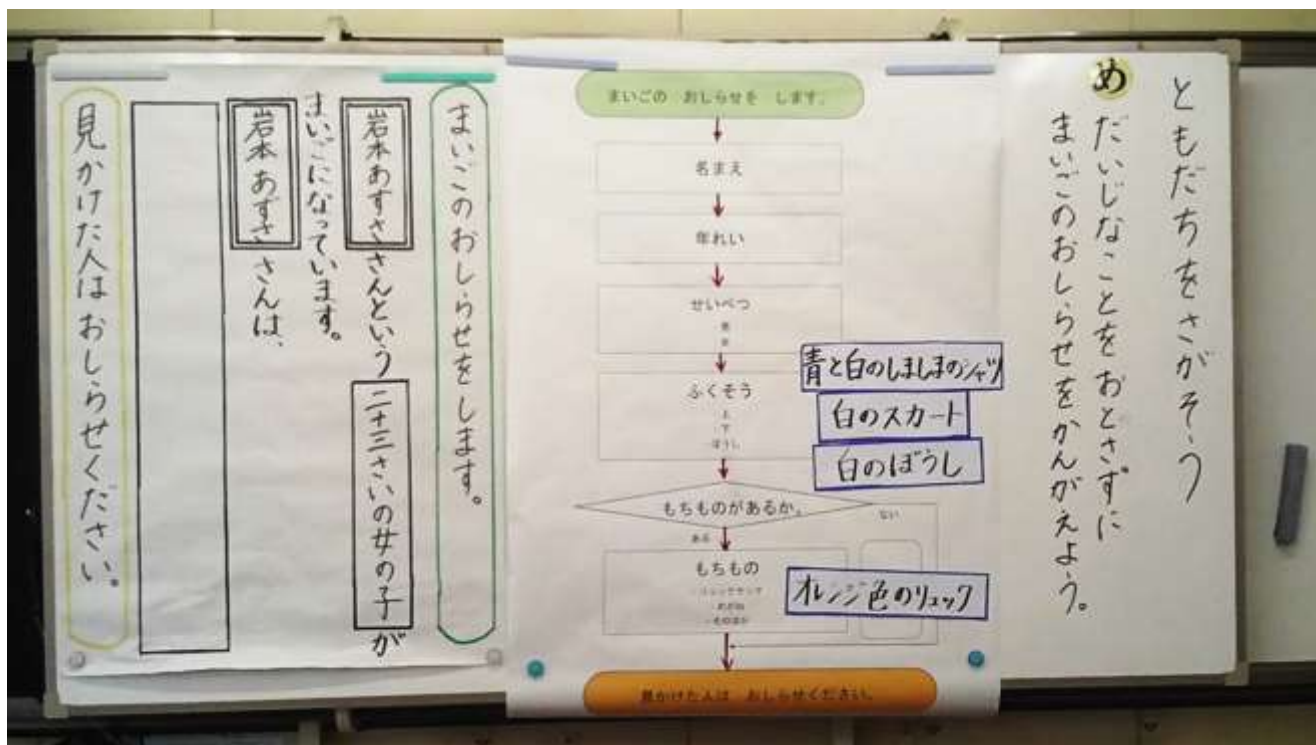 ともだちをさがそう
め
だいじなことをおとさずに
まいごのおしらせをかんがえよう。
まいごの おしらせを します。
名まえ
年れい
せいべつ
ふくそう
上
下
ぼうし
青と白のしましまのシャツ
白のスカート
白のぼうし
もちものがあるか。
ない
ある
もちもの
オレンジ色のリュック
見かけた人は おしらせください。
まいごのおしらせをします。
岩本あずささんという二十三さいの女の子が
まいごになっています。
岩本あずささんは、
見かけた人はおしらせください。